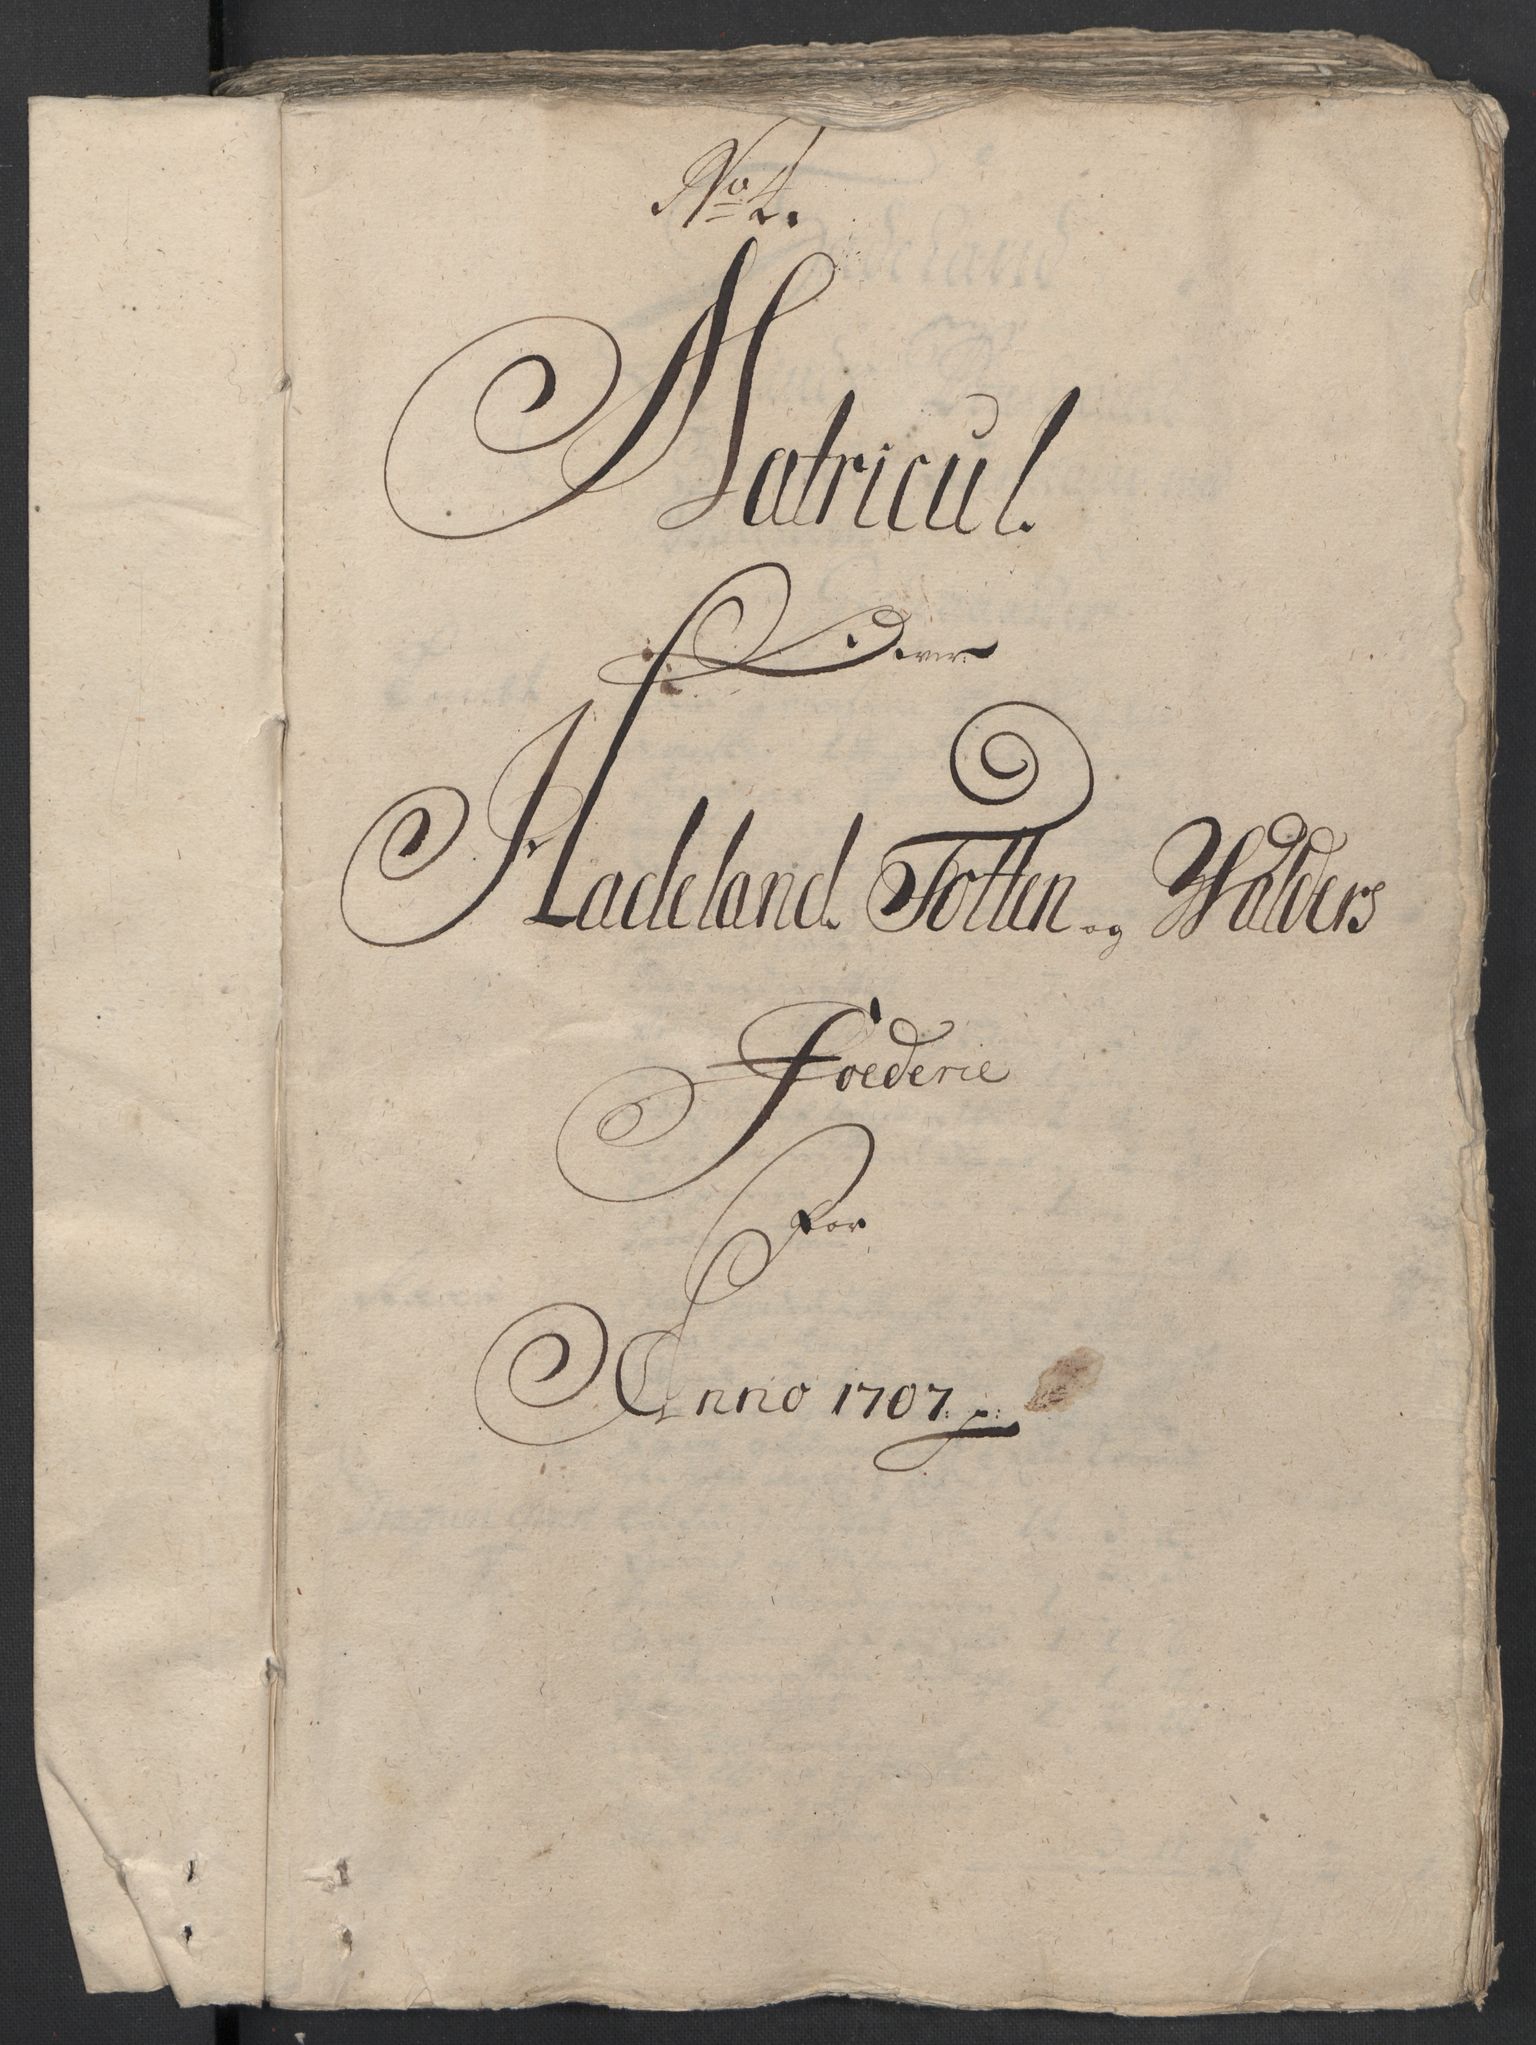 No 4.
Matricul.
Over
Hadeland. Totten og Walders
Foederie
For
Anno 1707